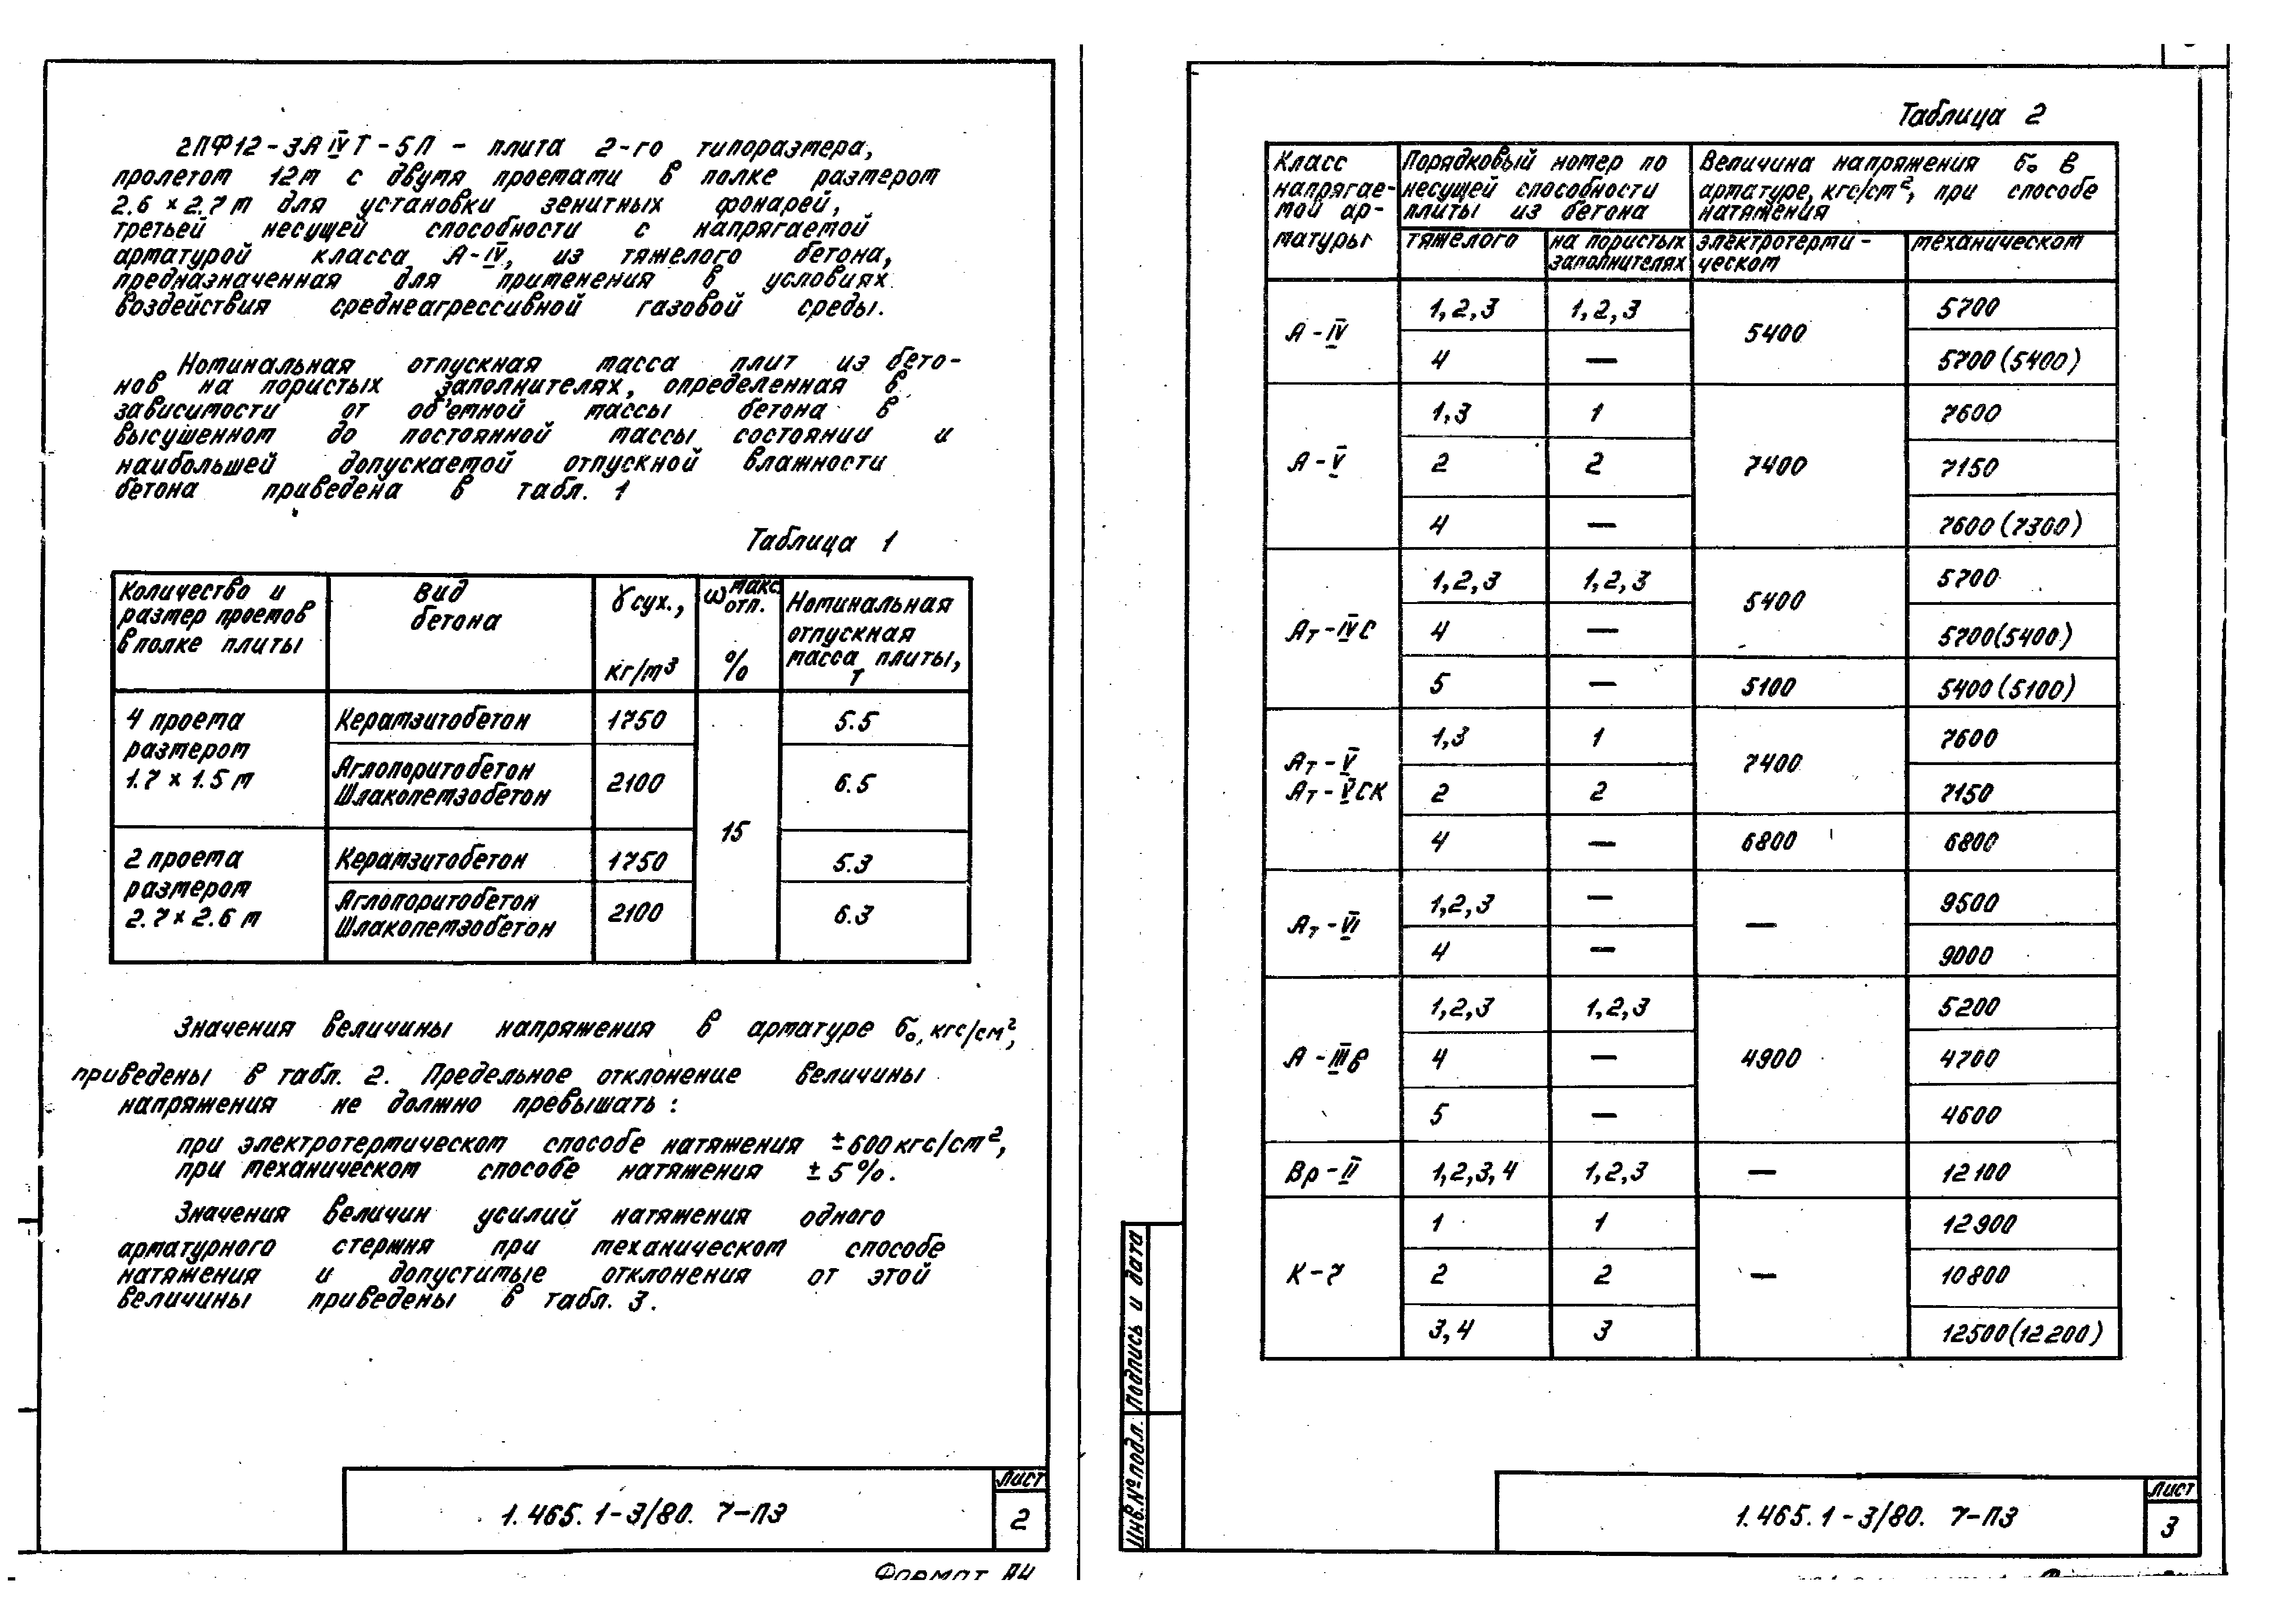 2ПФ12-3АIVТ-5П – плита 2-го типоразмера,
пролетом 12м с двумя проемами в полке размером
2.6 × 2.7 м для установки зенитных фонарей,
третьей несущей способности с напрягаемой
арматурой класса А-IV, из тяжелого бетона,
предназначенная для применения в условиях
воздействия среднеагрессивной газовой среды.
Номинальная отпускная масса плит из бето-
нов на пористых заполнителях, определенная в
зависимости от об'емной массы бетона в
высушенном до постоянной массы состоянии и
наибольшей допускаемой отпускной влажности
бетона приведена в табл. 1
Таблица 1
Количество и размер проемов в полке плиты | Вид бетона | γсух., кг/м³ | ω макс. отп. % | Номинальная отпускная масса плиты, т
4 проема размером 1.7 × 1.5 м | Керамзитобетон | 1750 | 15 | 5.5
Аглопоритобетон Шлакопемзобетон | 2100 | 6.5
2 проема размером 2.7 × 2.6 м | Керамзитобетон | 1750 | 5.3
Аглопоритобетон Шлакопемзобетон | 2100 | 6.3
Значения величины напряжения в арматуре σ₀, кгс/см²,
приведены в табл. 2. Предельное отклонение величины
напряжения не должно превышать:
при электротермическом способе натяжения ±600 кгс/см²,
при механическом способе натяжения ±5%.
Значения величин усилий натяжения одного
арматурного стержня при механическом способе
натяжения и допустимые отклонения от этой
величины приведены в табл. 3.
1.465.1-3/80. 7-ПЗ
Лист
2
Формат А4
Таблица 2
Класс напрягае-мой ар-матуры | Порядковый номер по несущей способности плиты из бетона | Величина напряжения σ₀ в арматуре, кгс/см², при способе натяжения
тяжелого | на пористых заполнителях | электротерми-ческом | механическом
А-IV | 1,2,3 | 1,2,3 | 5400 | 5700
4 | — | 5700 (5400)
А-V | 1,3 | 1 | 7400 | 7600
2 | 2 | 7150
4 | — | 7600 (7300)
Ат-IVС | 1,2,3 | 1,2,3 | 5400 | 5700
4 | — | 5700 (5400)
5 | — | 5100 | 5400 (5100)
Ат-V Ат-VСК | 1,3 | 1 | 7400 | 7600
2 | 2 | 7150
4 | — | 6800 | 6800
Ат-VI | 1,2,3 | — | — | 9500
4 | — | 9000
А-IIIв | 1,2,3 | 1,2,3 | 4900 | 5200
4 | — | 4700
5 | — | 4600
Вр-II | 1,2,3,4 | 1,2,3 | — | 12100
К-7 | 1 | 1 | — | 12900
2 | 2 | 10800
3,4 | 3 | 12500 (12200)
Инв.№ подл. Подпись и дата
1.465.1-3/80. 7-ПЗ
Лист
3